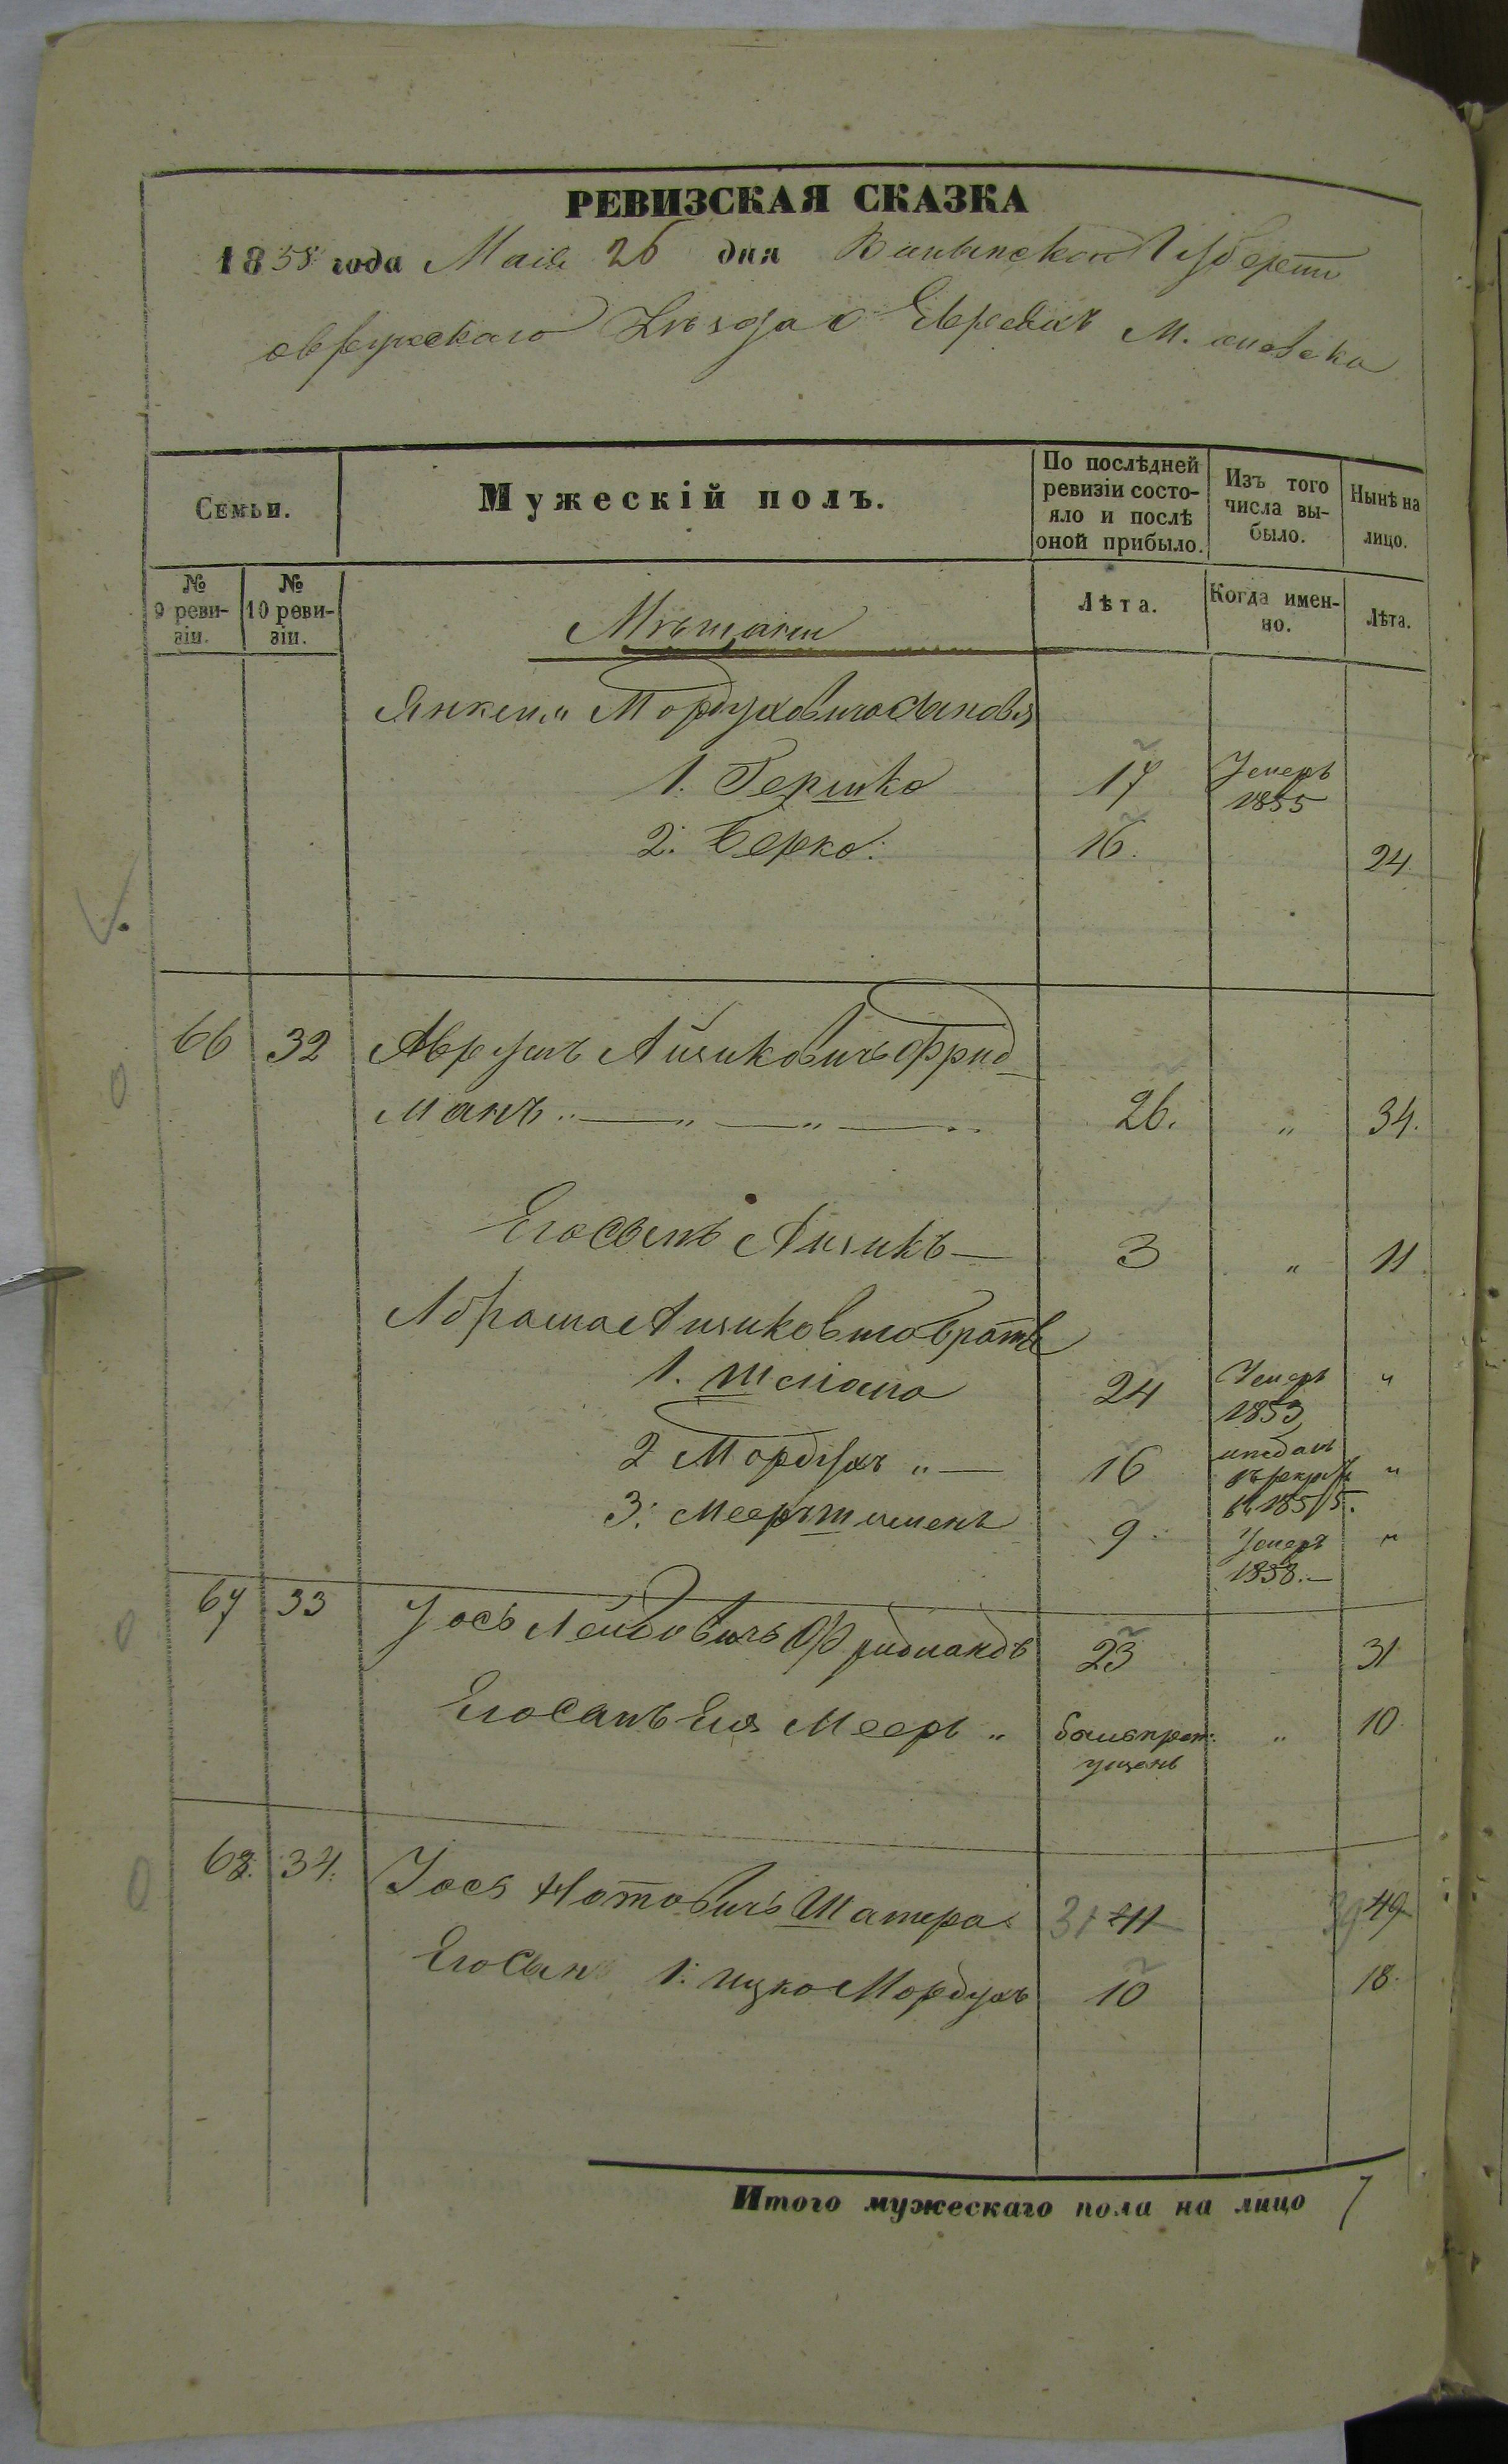 РЕВИЗСКАЯ СКАЗКА
1858 года Маія 26 дня Валынской Губерніи
овручскаго Уѣзда о Евреяхъ М.
Семьи.
Мужескій полъ.
По послѣдней ревизіи состояло и послѣ оной прибыло.
Изъ того числа выбыло.
Нынѣ на лицо.
№ 9 ревизіи.
№ 10 ревизіи.
Лѣта.
Когда именно.
Лѣта.
Мѣщани
Янкеля Мордуховича сыновя
1. Гершко 17 Умеръ 1855
2. Берко. 16. 24
66 32 Аврумъ Айзиковичъ Фрид
манъ 26. " 34.
Его сынъ Айзикъ 3 " 11
Абрама Айзиковича братя
1. Шлiома 24 Умеръ 1853 "
2 Мордухъ " 16 отданъ въ рекруты в 1855. "
3. Мееръ 9 Умеръ 1858. "
67 33 Іось Лейбовичъ Фридмандъ 23 31
Его сынъ Еля Мееръ " былъ пропущенъ " 10
68. 34. Іось Нотовичъ Шапира 31 41 39 49
Его сын 1. Ицко Мордухъ 10 18
Итого мужескаго пола на лицо 7